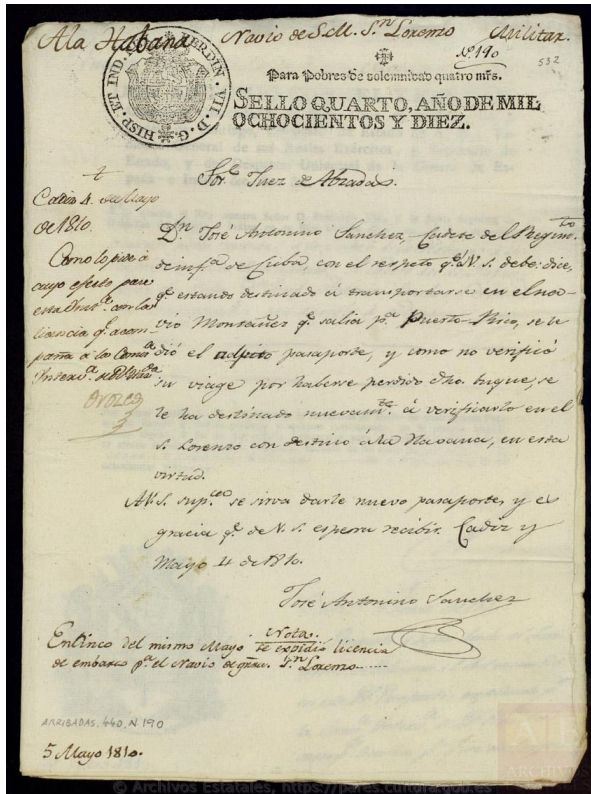 A la Habana Navio de S.M. Sn. Lorenzo Militar.
Nº. 190
532
HISP. ET IND. FERDIN. VII. D. G.
Para Pobres de solemnidad quatro mrs.
SELLO QUARTO, AÑO DE MIL
OCHOCIENTOS Y DIEZ.
Sor. Juez de Arribadas.
Cadiz 4. de Mayo
de 1810.
Como lo pide á
cuyo efecto pase
esta Inst.ª con la
licencia q.e acom
paña á la
Orozco
Dn. José Antonino Sanchez, Cadete del Regim.to
de inf.ª de Cuba, con el respeto q.e á V. S. debe: dice,
q.e estando destinado á transportarse en el na-
vio Montañez q.e salia p.ª Puerto-Rico, se le
dió el adjto pasaporte, y como no verificó
su viage por haberse perdido dho. buque, se
le ha destinado nuevam.te á verificarlo en el
S. Lorenzo con destino á la Havana, en esta
virtud.
A V. S. sup.co se sirva darle nuevo pasaporte, y es
gracia q.e de V. S. espera recibir. Cadiz y
Mayo 4 de 1810.
José Antonino Sanchez
Nota.
En cinco del mismo Mayo se expidió licencia
de embarco p.ª el Navio de grra. Sn. Lorenzo
ARRIBADAS, 440, N.190
5 Mayo 1810.
© Archivos Estatales, https://pares.cultura.gob.es